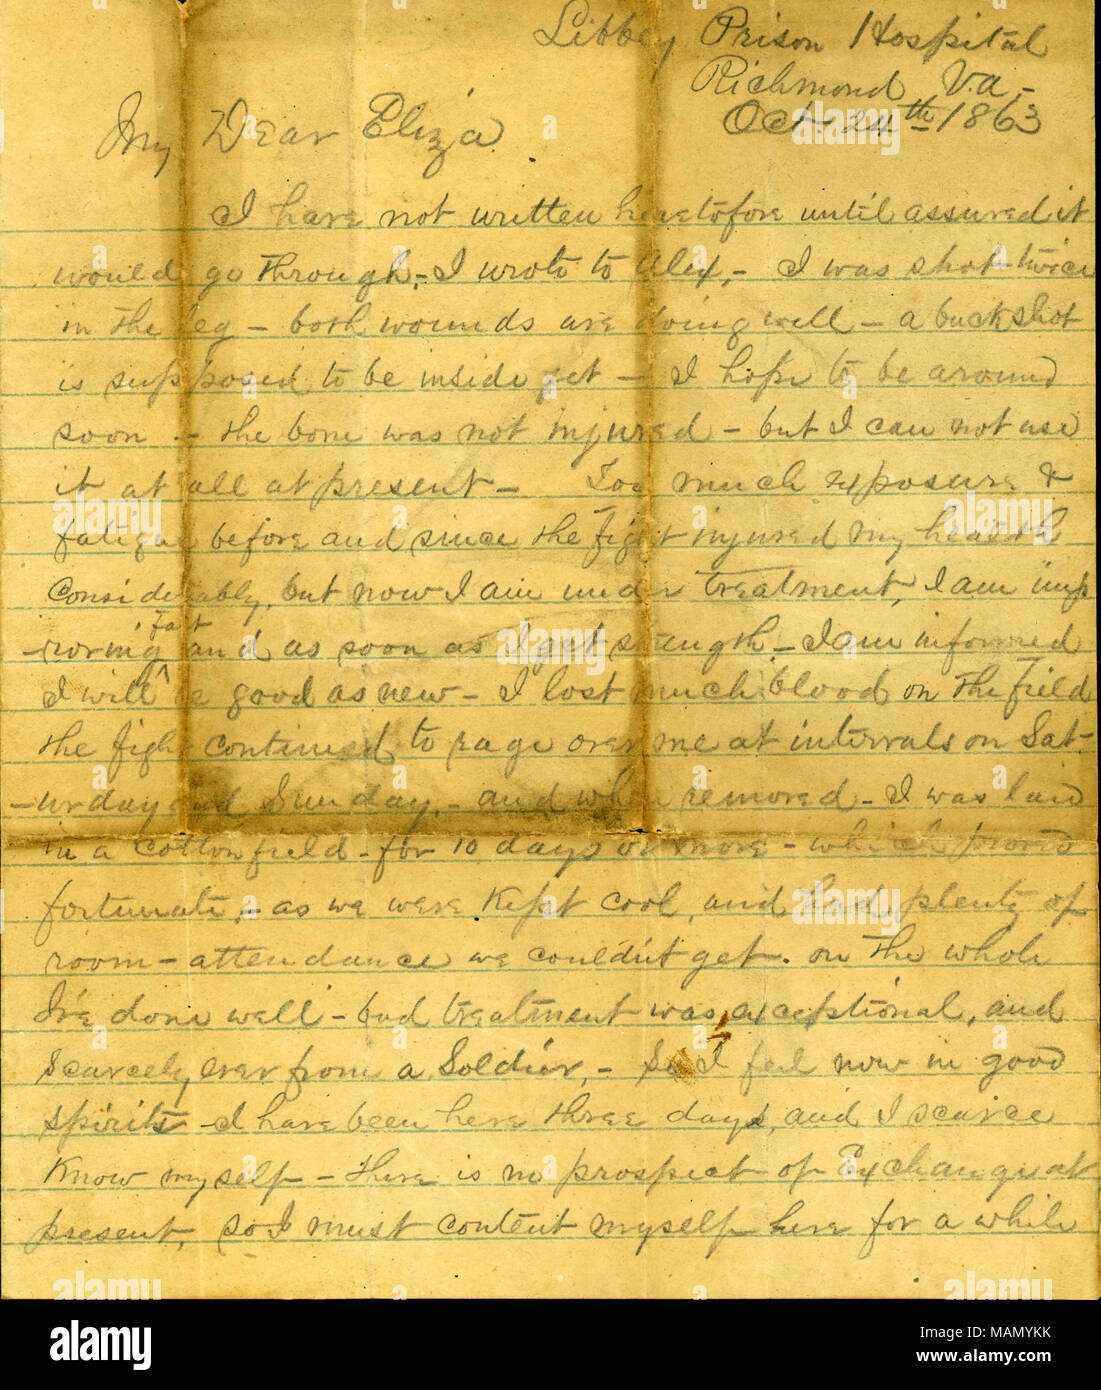 Libbey Prison Hospital
Richmond Va-
Oct. 24th 1863
My Dear Eliza
I have not written heretofore until assured it
would go through,- I wrote to Alex,- I was shot twice
in the leg - both wounds are doing well - a buckshot
is supposed to be inside yet - I hope to be around
soon - the bone was not injured - but I can not use
it at all at present - Too much exposure &
fatigue before and since the fight injured my health
considerably, but now I am under treatment, I am imp
-roving fast and as soon as I get strength - I am informed
I will be good as new - I lost much blood on the field
the fight continued to rage over me at intervals on Sat-
-urday and Sunday,- and when removed - I was laid
in a cotton field - for 10 days or more - which proved
fortunate,- as we were kept cool, and had plenty of
room - attendance we couldn't get. on the whole
I've done well - bad treatment was exceptional, and
scarcely ever from a Soldier,- So I feel now in good
spirits - I have been here three days, and I scarce
know myself - there is no prospect of Exchange at
present, so I must content myself here for a while
alamy
Image ID: MAMYKK
www.alamy.com